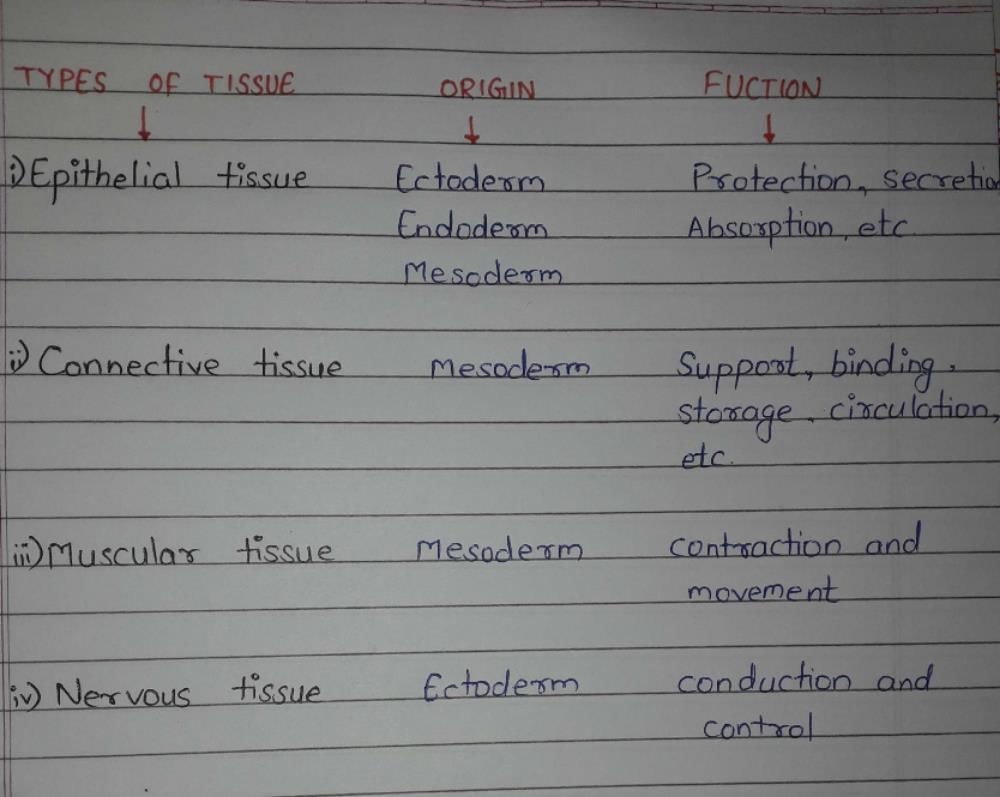 TYPES OF TISSUE ORIGIN FUCTION
i) Epithelial tissue Ectoderm Protection, secretio
Endoderm Absorption, etc
Mesoderm
ii) Connective tissue Mesoderm Support, binding,
storage, circulation,
etc.
iii) Muscular tissue Mesoderm contraction and
movement
iv) Nervous tissue Ectoderm conduction and
control